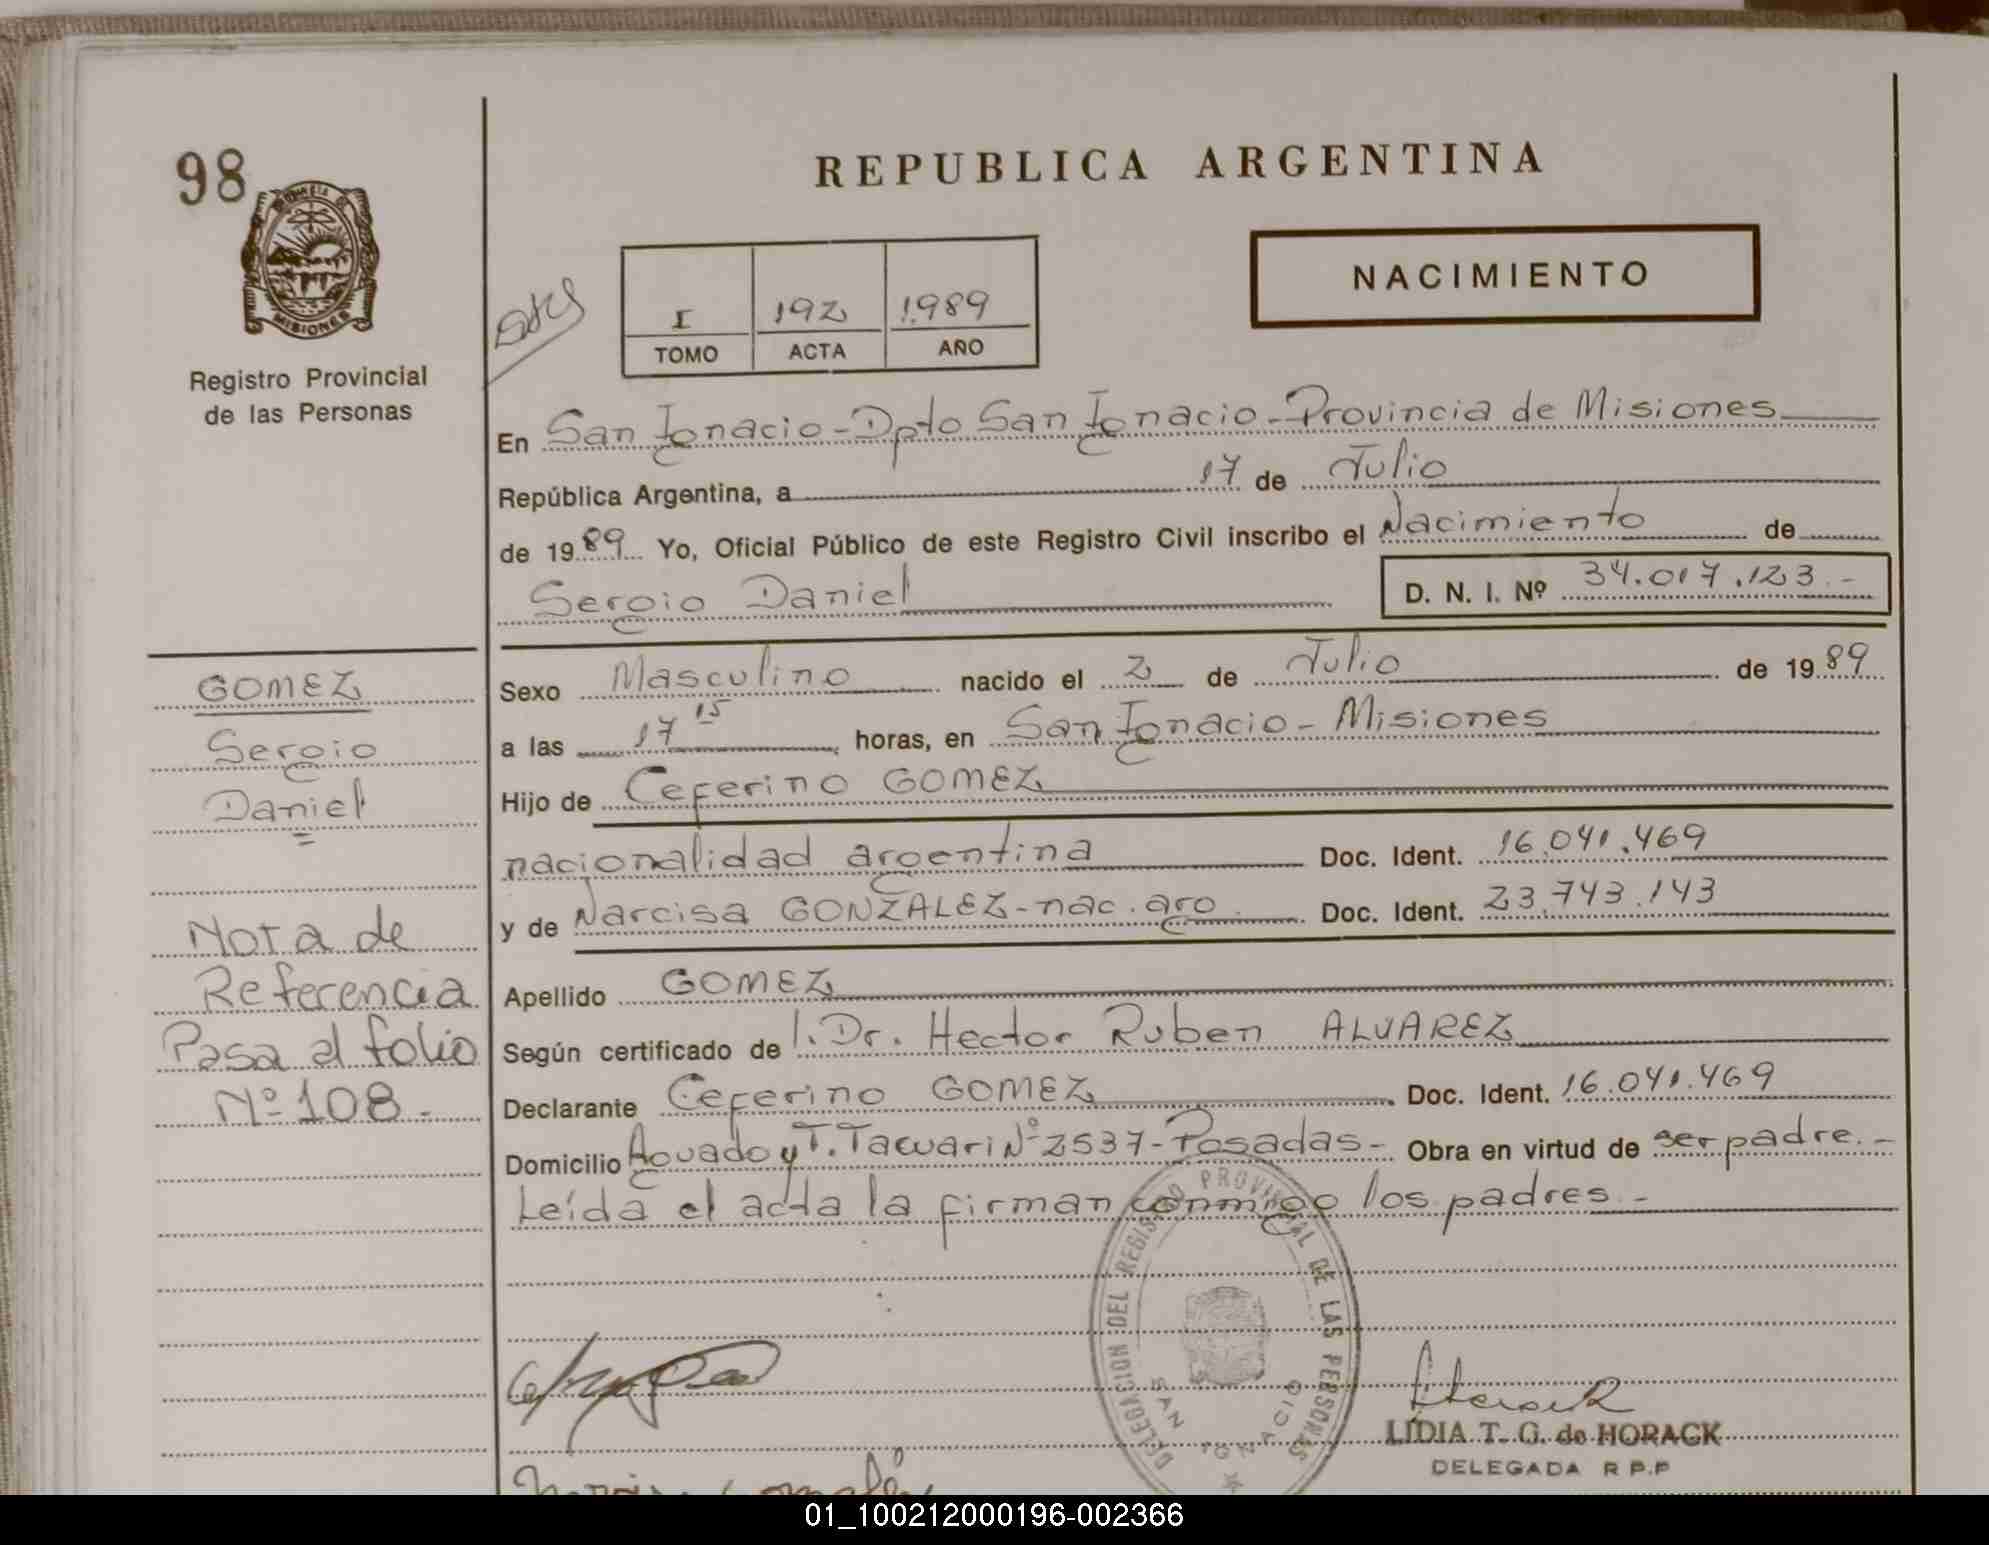 98
REPUBLICA ARGENTINA
PROVINCIA DE
MISIONES
Registro Provincial
de las Personas
I 192 1.989
TOMO ACTA AÑO
NACIMIENTO
En San Ignacio - Dpto San Ignacio - Provincia de Misiones
República Argentina, a 17 de Julio
de 1989 Yo, Oficial Público de este Registro Civil inscribo el Nacimiento de
Sergio Daniel D. N. I. Nº 34.017.123.-
Sexo Masculino nacido el 2 de Julio de 1989
a las 17 15 horas, en San Ignacio - Misiones
Hijo de Ceferino GOMEZ
nacionalidad argentina Doc. Ident. 16.041.469
y de Narcisa GONZALEZ - nac. arg. Doc. Ident. 23.743.143
Apellido GOMEZ
Según certificado de l. Dr. Hector Ruben ALVAREZ
Declarante Ceferino GOMEZ Doc. Ident. 16.041.469
Domicilio Aguado y T. Tacuari Nº 2537 - Posadas - Obra en virtud de ser padre.-
Leída el acta la firman conmigo los padres.-
GOMEZ
Sergio
Daniel
Nota de
Referencia
Pasa al folio
Nº 108.-
DELEGACION DEL REGISTRO PROVINCIAL DE LAS PERSONAS
SAN IGNACIO
LIDIA T. G. de HORACK
DELEGADA R P.P
01_100212000196-002366